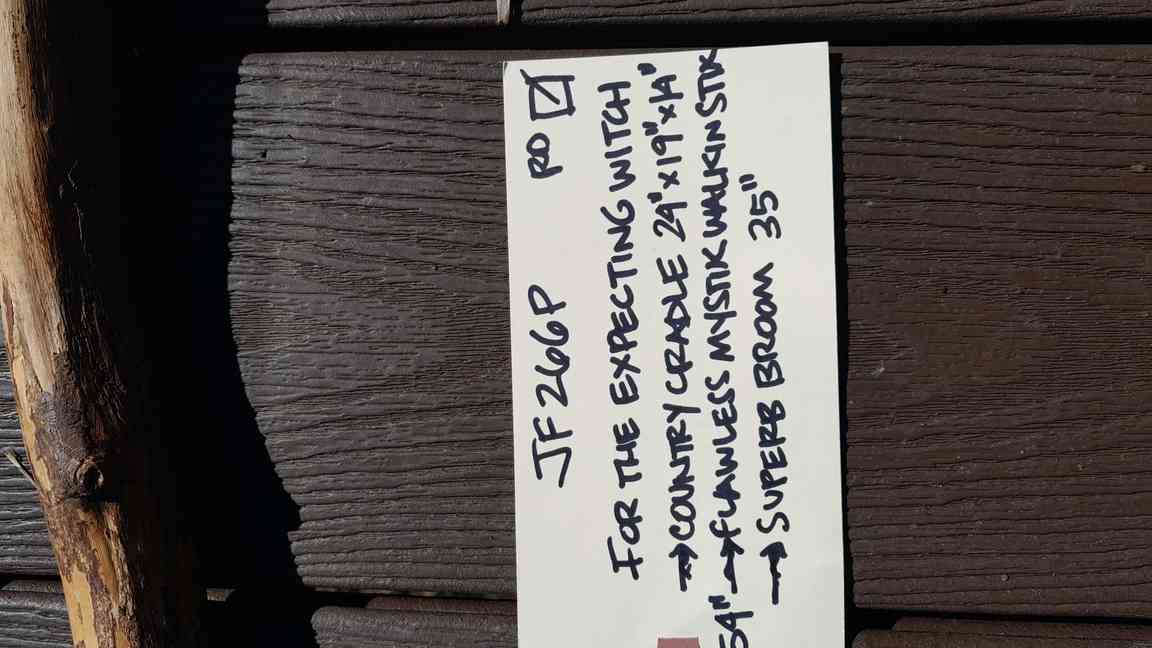 JF266P RO
FOR THE EXPECTING WITCH
→COUNTRY CRADLE 29"x19"x14"
54"→FLAWLESS MYSTIK WALKIN STIK
→SUPERB BROOM 35"